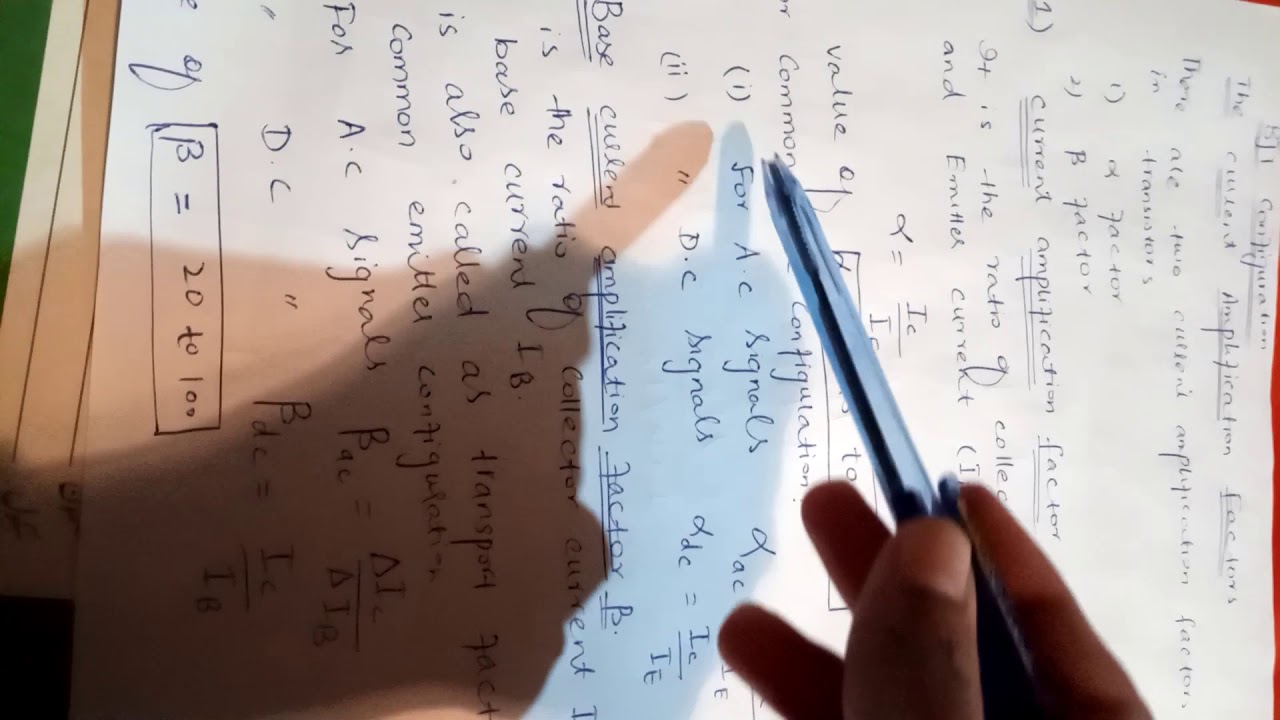 BJT Configuration
The current Amplification factors
There are two current amplification factors
in transistors
1) α factor
2) β factor
1) current amplification factor
It is the ratio of collec
and Emitter current (I
α = Ic
value of to
or common configuration.
(i) for A.c signals αac
(ii) " D.c signals αdc = Ic / IE
Base current amplification factor β.
is the ratio of collector current I
base current IB.
is also called as transport fact
common emitter configuration
For A.c signals βac = ΔIc / ΔIB
" D.C " βdc = Ic / IB
e of β = 20 to 100